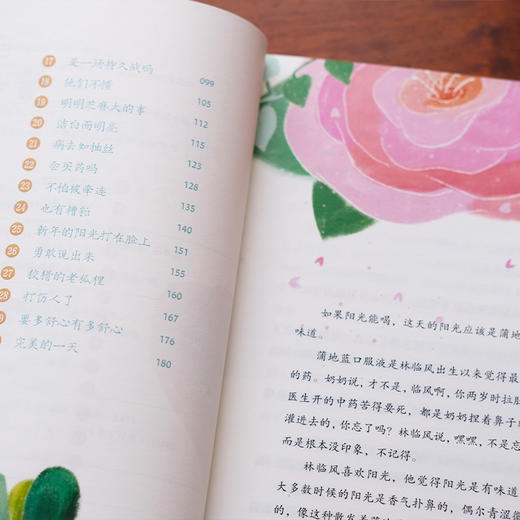 17 是一场持久战吗 099
18 他们不懂 105
19 明明芝麻大的事 112
20 洁白而明亮 115
21 病去如抽丝 123
22 会买药吗 128
23 不怕被牵连 135
24 也有糟粕 140
25 新年的阳光打在脸上 151
26 勇敢说出来 155
27 狡猾的老狐狸 160
28 打伤人了 167
9 要多舒心有多舒心 176
完美的一天 180
如果阳光能喝，这天的阳光应该是蒲地
味道。
蒲地蓝口服液是林临风出生以来觉得最
的药。奶奶说，才不是，临风啊，你两岁时拉肚
医生开的中药苦得要死，都是奶奶捏着鼻子
灌进去的，你忘了吗？林临风说，嘿嘿，不是忘
而是根本没印象，不记得。
林临风喜欢阳光，他觉得阳光是有味道
大多数时候的阳光是香气扑鼻的，偶尔青涩
的，像这种散发着